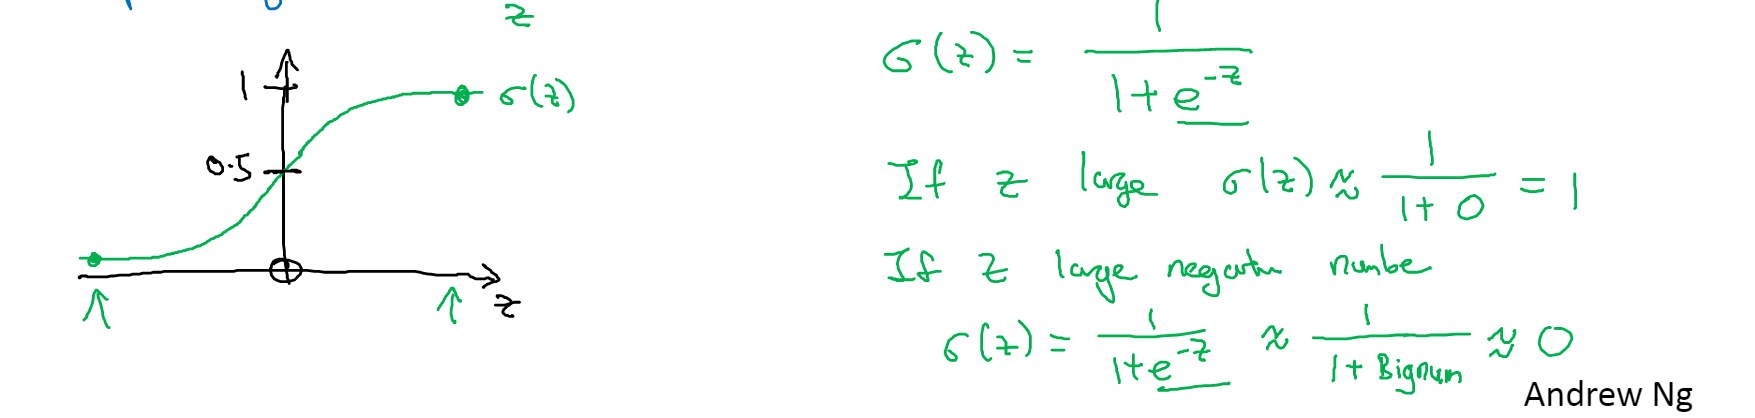 z
1
σ(z)
0.5
z
σ(z) = 1 / (1 + e^{-z})
If z large σ(z) ≈ 1 / (1 + 0) = 1
If z large negative number
σ(z) = 1 / (1 + e^{-z}) ≈ 1 / (1 + Bignum) ≈ 0
Andrew Ng